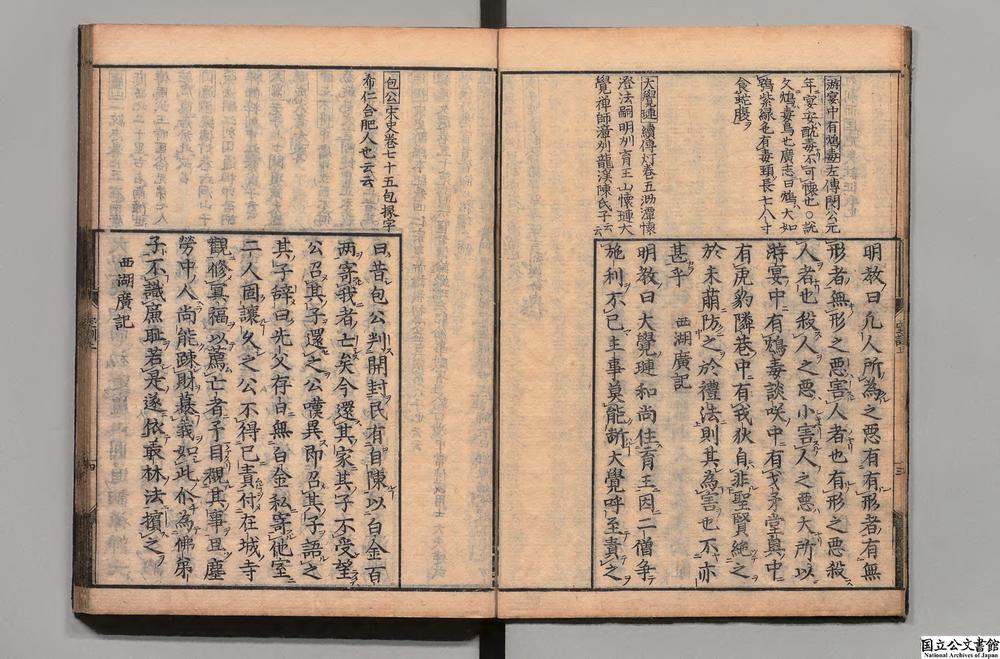 游宴中有鴆毒左傳閔公元
年宴安酖毒不可懐也○説
文鴆毒鳥也廣志曰鴆大如
鴞紫緑色有毒頸長七八寸
食蛇腹
大覺璉續傳灯巻五泐潭懐
澄法嗣明州育王山懐璉大
覺禅師漳州龍溪陳氏子云云
明教曰凡人所為之惡有有形者有無
形者無形之惡害人者也有形之惡殺
人者也殺人之惡小害人之惡大所以
游宴中有鴆毒談咲中有戈矛堂奥中
有虎豹隣巷中有戎狄自非聖賢絶之
於未萌防之於禮法則其為害也不亦
甚乎 西湖廣記
明教曰大覺璉和尚住育王因二僧争
施利不已主事莫能断大覺呼至責之
三
包公宋史巻七十五包拯字
希仁合肥人也云云
曰昔包公判開封民有自陳以白金百
两寄我者亡矣今還其家其子不受望
公召其子還之公嘆異即召其子語之
其子辭曰先父存日無白金私寄他室
二人固讓久之公不得已責付在城寺
觀修冥福以薦亡者予目觀其事且塵
勞中人尚能疎財慕義如此尒為佛弟
子不識廉耻若是遂依叢林法擯之
西湖廣記
四
国立公文書館
National Archives of Japan